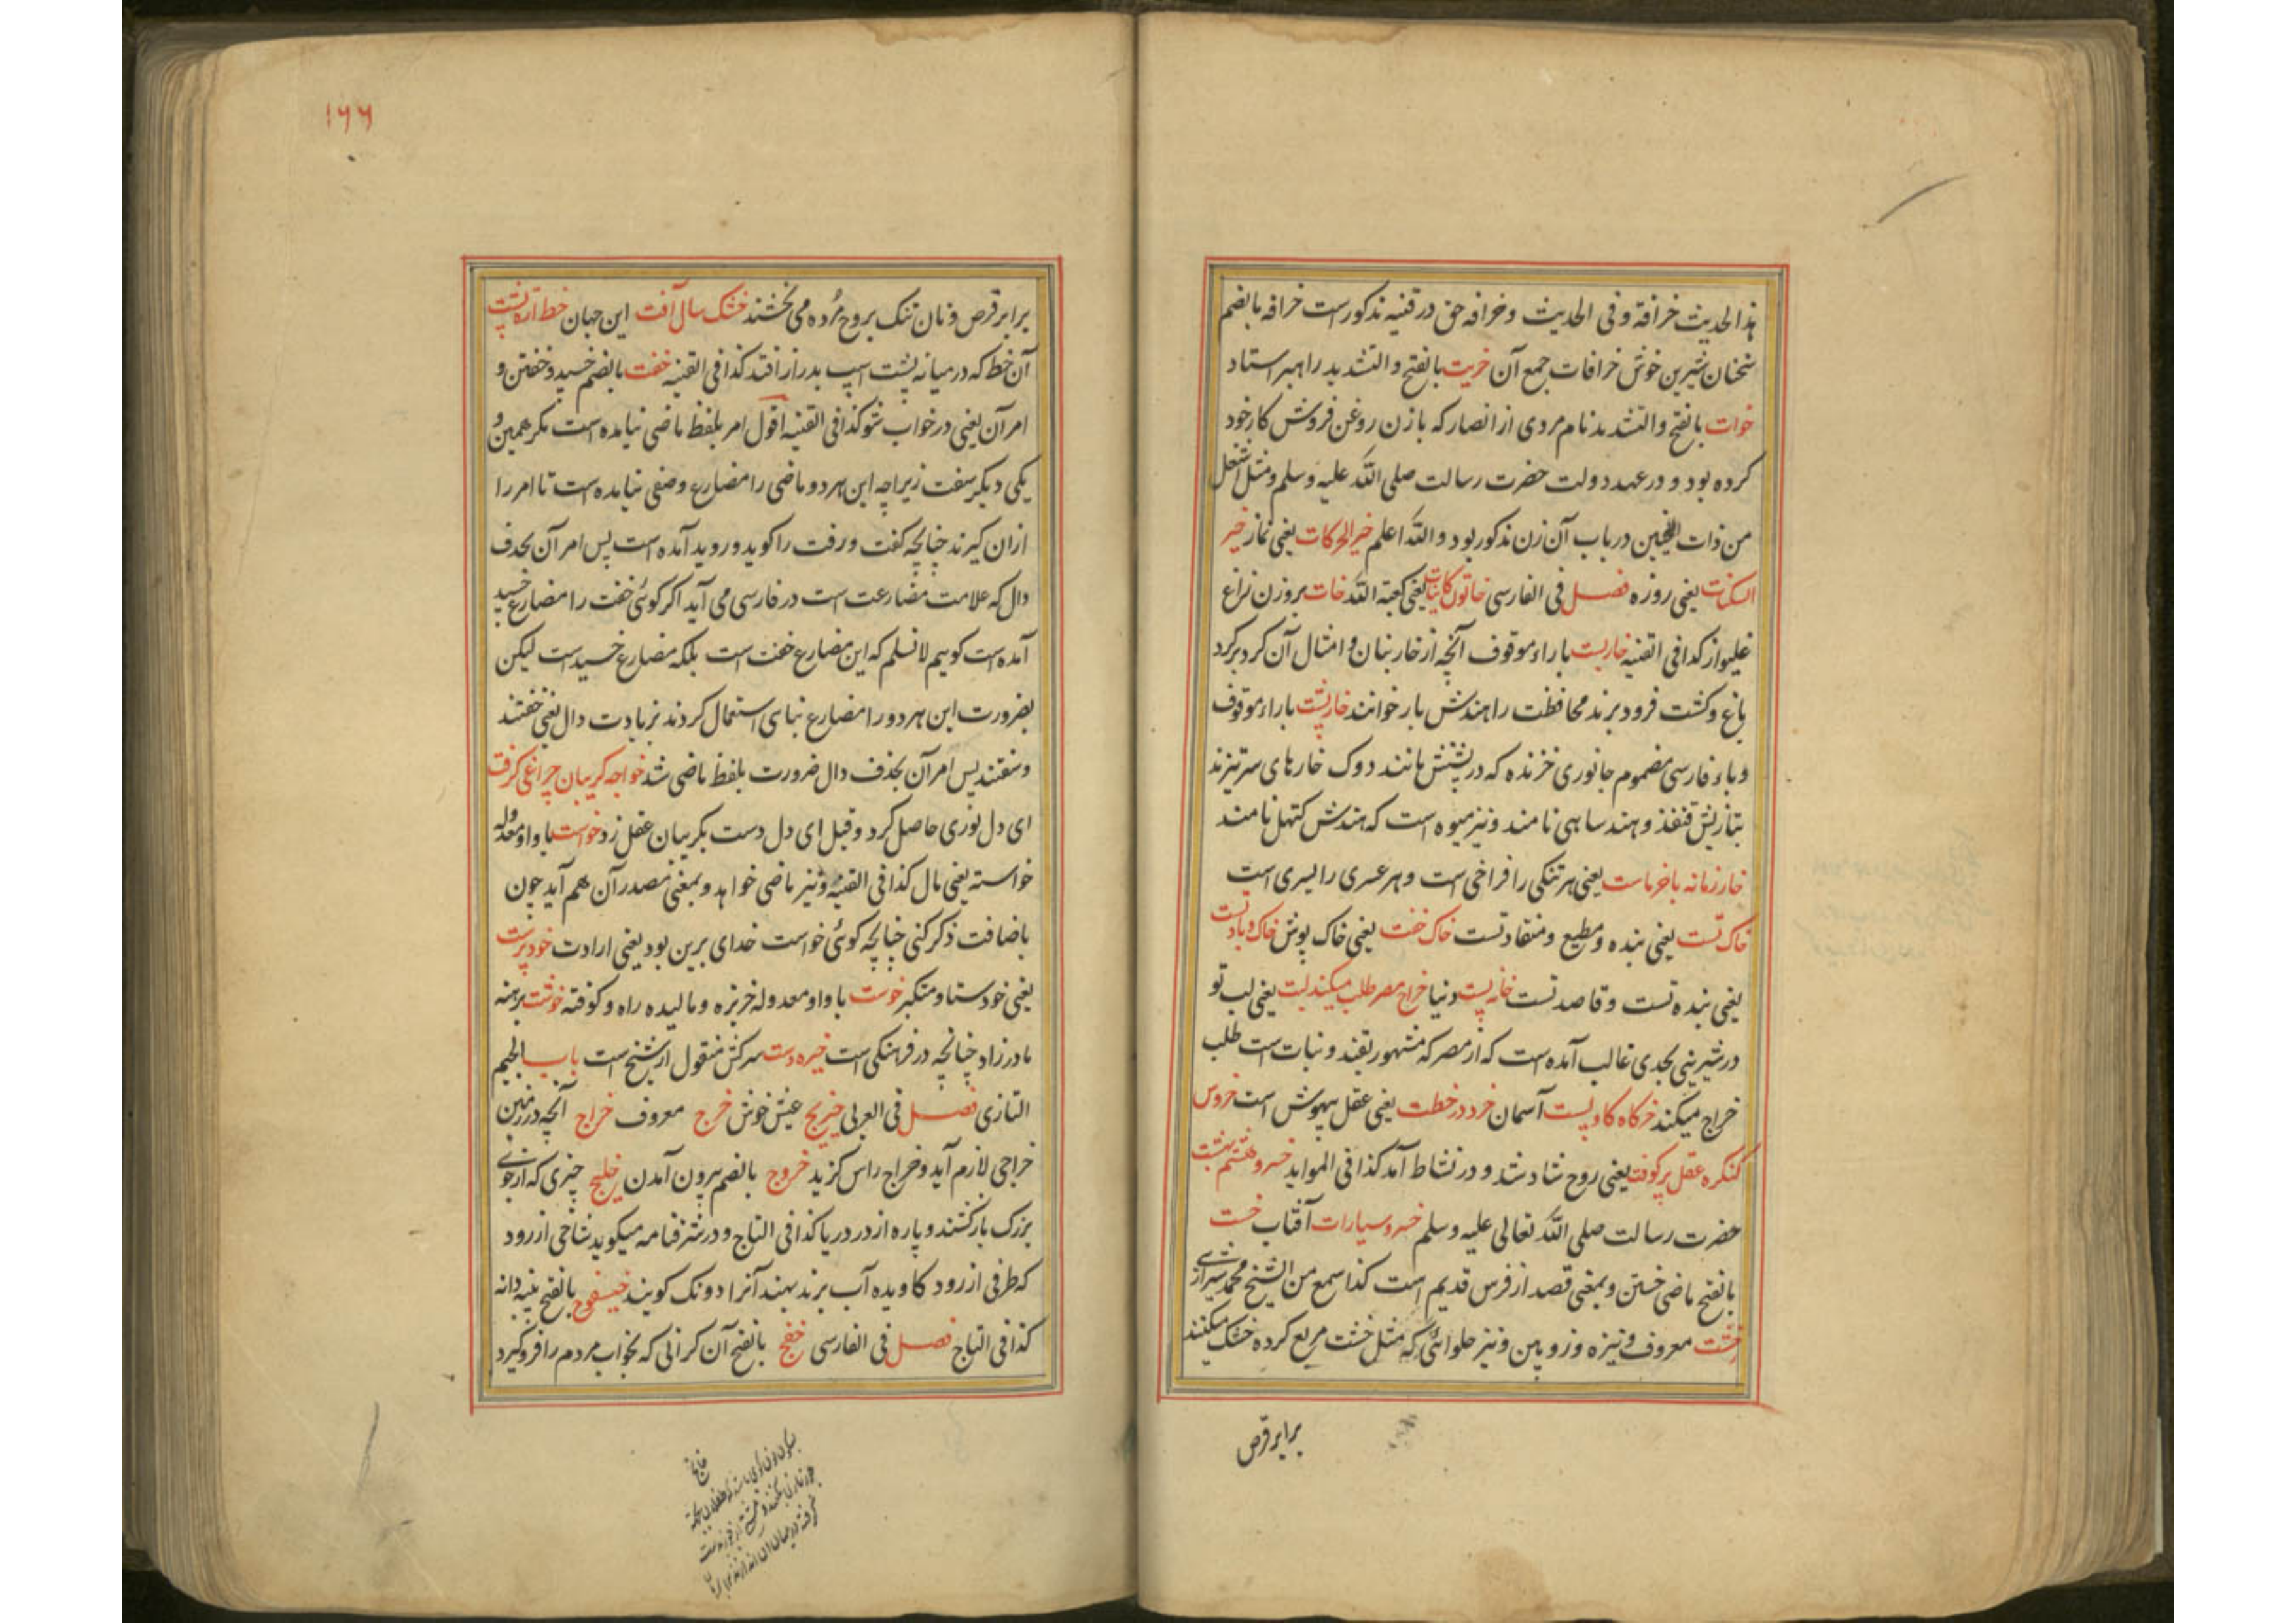 هذا الحدیث خرافة و فی الحدیث و خرافه حق در قنیه مذکورست خرافه بالضم
سخنان شیرین خوش خرافات جمع آن خریت بالفتح و التشدید راهبر استاد
خوات بالفتح و التشدید نام مردی از انصار که با زن روغن فروش کار خود
کرده بود و در عهد دولت حضرت رسالت صلی الله علیه وسلم و مثل اشغل
من ذات النحیین در باب آن زن مذکور بود و الله اعلم خیر الحرکات یعنی نماز خیر
السکنات یعنی روزه فصل فی الفارسی خاتون کاینات یعنی کعبة الله خات بروزن زاغ
غلیواز کذا فی القنیه خاربست با راء موقوف آنچه از خار بنان و امثال آن گرد برگرد
باغ و کشت فرود برند محافظت را هندش بار خوانند خارپشت با راء موقوف
و باء فارسی مضموم جانوری خزنده که در پشتش مانند دوک خارهای سرتیزند
بتازیش قنفذ و هند ساهی نامند و نیز میوه است که هندش کتهل نامند
خار زمانه با خرماست یعنی هر تنگی را فراخی است و هر عسری را یسری است
خاک تست یعنی بنده و مطیع و منقاد تست خاک خفت یعنی خاک پوش خاک و باد تست
یعنی بنده تست و قاصد تست خانه پست دنیا خراج مصر طلب میکند لبت یعنی لب تو
در شیرینی بحدی غالب آمده است که از مصر که مشهور بقند و نبات است طلب
خراج میکند خرگاه گاوپست آسمان خرد در خطت یعنی عقل بیهوش است خروس
کنگره عقل پر کوفت یعنی روح شاد شد و در نشاط آمد کذا فی المواید خسرو هشتم بهشت
حضرت رسالت صلی الله تعالی علیه وسلم خسرو سیارات آفتاب خست
بالفتح ماضی خستن و بمعنی قصد از فرس قدیم است کذا سمع من الشیخ محمد شیرازی
خشت معروف و نیزه و زوبین و نیز حلوائی که مثل خشت مربع کرده خشک میکنند
برابر قرص
۱۶۶
برابر قرص و نان تنک بروح مرده می بخشند خشک سال آفت این جهان خط اره پشت
آن خط که در میانه پشت اسپ بدراز افتد کذا فی القنیه خفت بالضم خسید و خفتن و
امر آن یعنی در خواب شو کذا فی القنیه اقول امر بلفظ ماضی نیامده است مگر همین و
یکی دیگر سفت زیراچه این هر دو ماضی را مضارع وضعی نیامده است تا امر را
ازان گیرند چنانچه گفت و رفت را گوید و رود آمده است پس امر آن بحذف
دال که علامت مضارعت است در فارسی می آید اگر گوئی خفت را مضارع خسپد
آمده است گوییم لا نسلم که این مضارع خفت است بلکه مضارع خسپیدست لیکن
بضرورت این هر دو را مضارع بنای استعمال کردند بزیادت دال یعنی خفتند
و سفتند پس امر آن بحذف دال ضرورت بلفظ ماضی شد خواجه گریبان چراغی گرفت
ای دل نوری حاصل کرد و قیل ای دل دست بگریبان عقل زد خواست با واو معدوله
خواسته یعنی مال کذا فی القنیه و نیز ماضی خواهد و بمعنی مصدر آن هم آید چون
باضافت ذکر کنی چنانچه گوئی خواست خدای برین بود یعنی ارادت خودپرست
یعنی خودستا و متکبر خوست با واو معدوله خربزه و مالیده راه و کوفته خوشت برهنه
مادرزاد چنانچه در فرهنگی است خیره دست سرکش منقول از شیخ است باب الجیم
التازی فصل فی العربی خریج عیش خوش خرج معروف خراج آنچه در زمین
خراجی لازم آید و خراج راس گزید خروج بالضم بیرون آمدن خلیج چیزی که از جوی
بزرگ باز کشند و پاره از در دریا کذا فی التاج و در شرفنامه میگوید شاخی از رود
که طرفی از رود کاویده آب برند بهند آنرا دونک گویند خیسفوج بالفتح پنبه دانه
کذا فی التاج فصل فی الفارسی خفج بالفتح آن گرانی که بخواب مردم را فرو گیرد